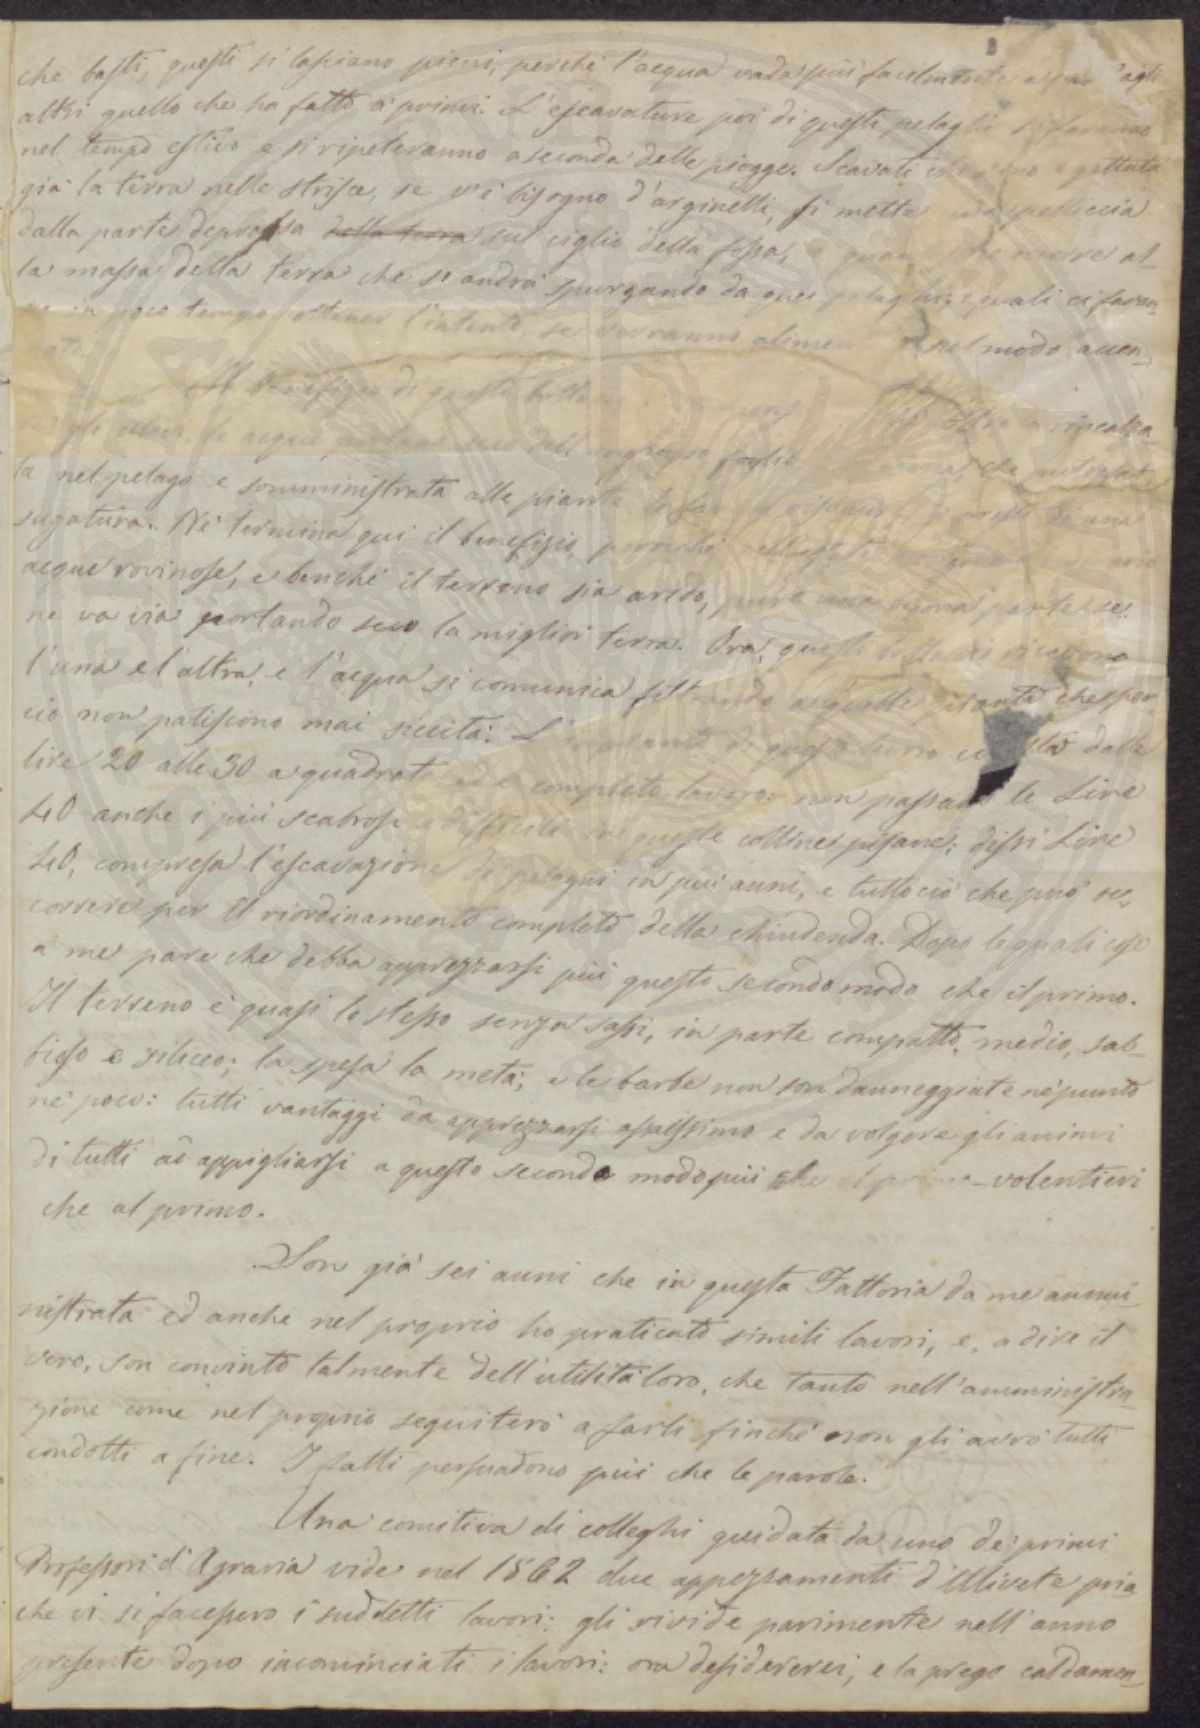 che basti, questi si lasciano pieni, perchè l'acqua vada più facilmente a agli
altri quello che ha fatto a' primi. L'escavature poi di questi pelaghi si faranno
nel tempo estivo e si ripeteranno a seconda delle piogge. Scavati e gettata
già la terra nelle strisce, se v'è bisogno d'arginelli, si mette una pelliccia
dalla parte depressa della terra sul ciglio della fossa, e quan occorre al-
la massa della terra che si andrà spurgando da quei pelaghi; i quali ci faran-
no in poco tempo ottener l'intento, se verranno alimen nel modo accen-
nato.
Il benefizio di questi botta oltre a rincalza-
gli ulivi, le acque foglie che
ta nel pelago e somministrata alle piante le fa di una
sugatura. Nè termina qui il benefizio, perocchè
acque rovinose, e benchè il terreno sia arido, pure una buona parte se
ne va via portando seco la miglior terra. Ora, questi ricevono
l'una e l'altra, e l'acqua si comunica filtrando a quelle piante che per-
ciò non patiscono mai siccità. L' di questo lavoro costa dalle
lire 20 alle 30 a quadrato ed a completo lavoro: non passano le Lire
40 anche i più scabrosi e difficili in queste colline pisane; dissi Lire
40, compresa l'escavazione de' pelaghi in più anni, e tutto ciò che può oc-
correre per il riordinamento completo della chiudenda. Dopo le quali cose
a me pare che debba apprezzarsi più questo secondo modo che il primo.
Il terreno è quasi lo stesso senza sassi, in parte compatto, medio, sab-
bioso e siliceo; la spesa la metà; e le barbe non son danneggiate nè punto
nè poco: tutti vantaggi da apprezzarsi assaissimo e da volgere gli animi
di tutti ad appigliarsi a questo secondo modo più che al primo volentieri
che al primo.
Son già sei anni che in questa Fattoria da me ammi-
nistrata ed anche nel proprio ho praticato simili lavori, e, a dire il
vero, son convinto talmente dell'utilità loro, che tanto nell'amministra-
zione come nel proprio seguiterò a farli finchè non gli avrò tutti
condotti a fine. I fatti persuadono più che le parole.
Una comitiva di colleghi guidata da uno de' primi
Professori d'Agraria vide nel 1862 due appezzamenti d'Ulivete pria
che vi si facessero i suddetti lavori: gli rivide parimente nell'anno
presente dopo incominciati i lavori: ora desidererei, e la prego caldamen-